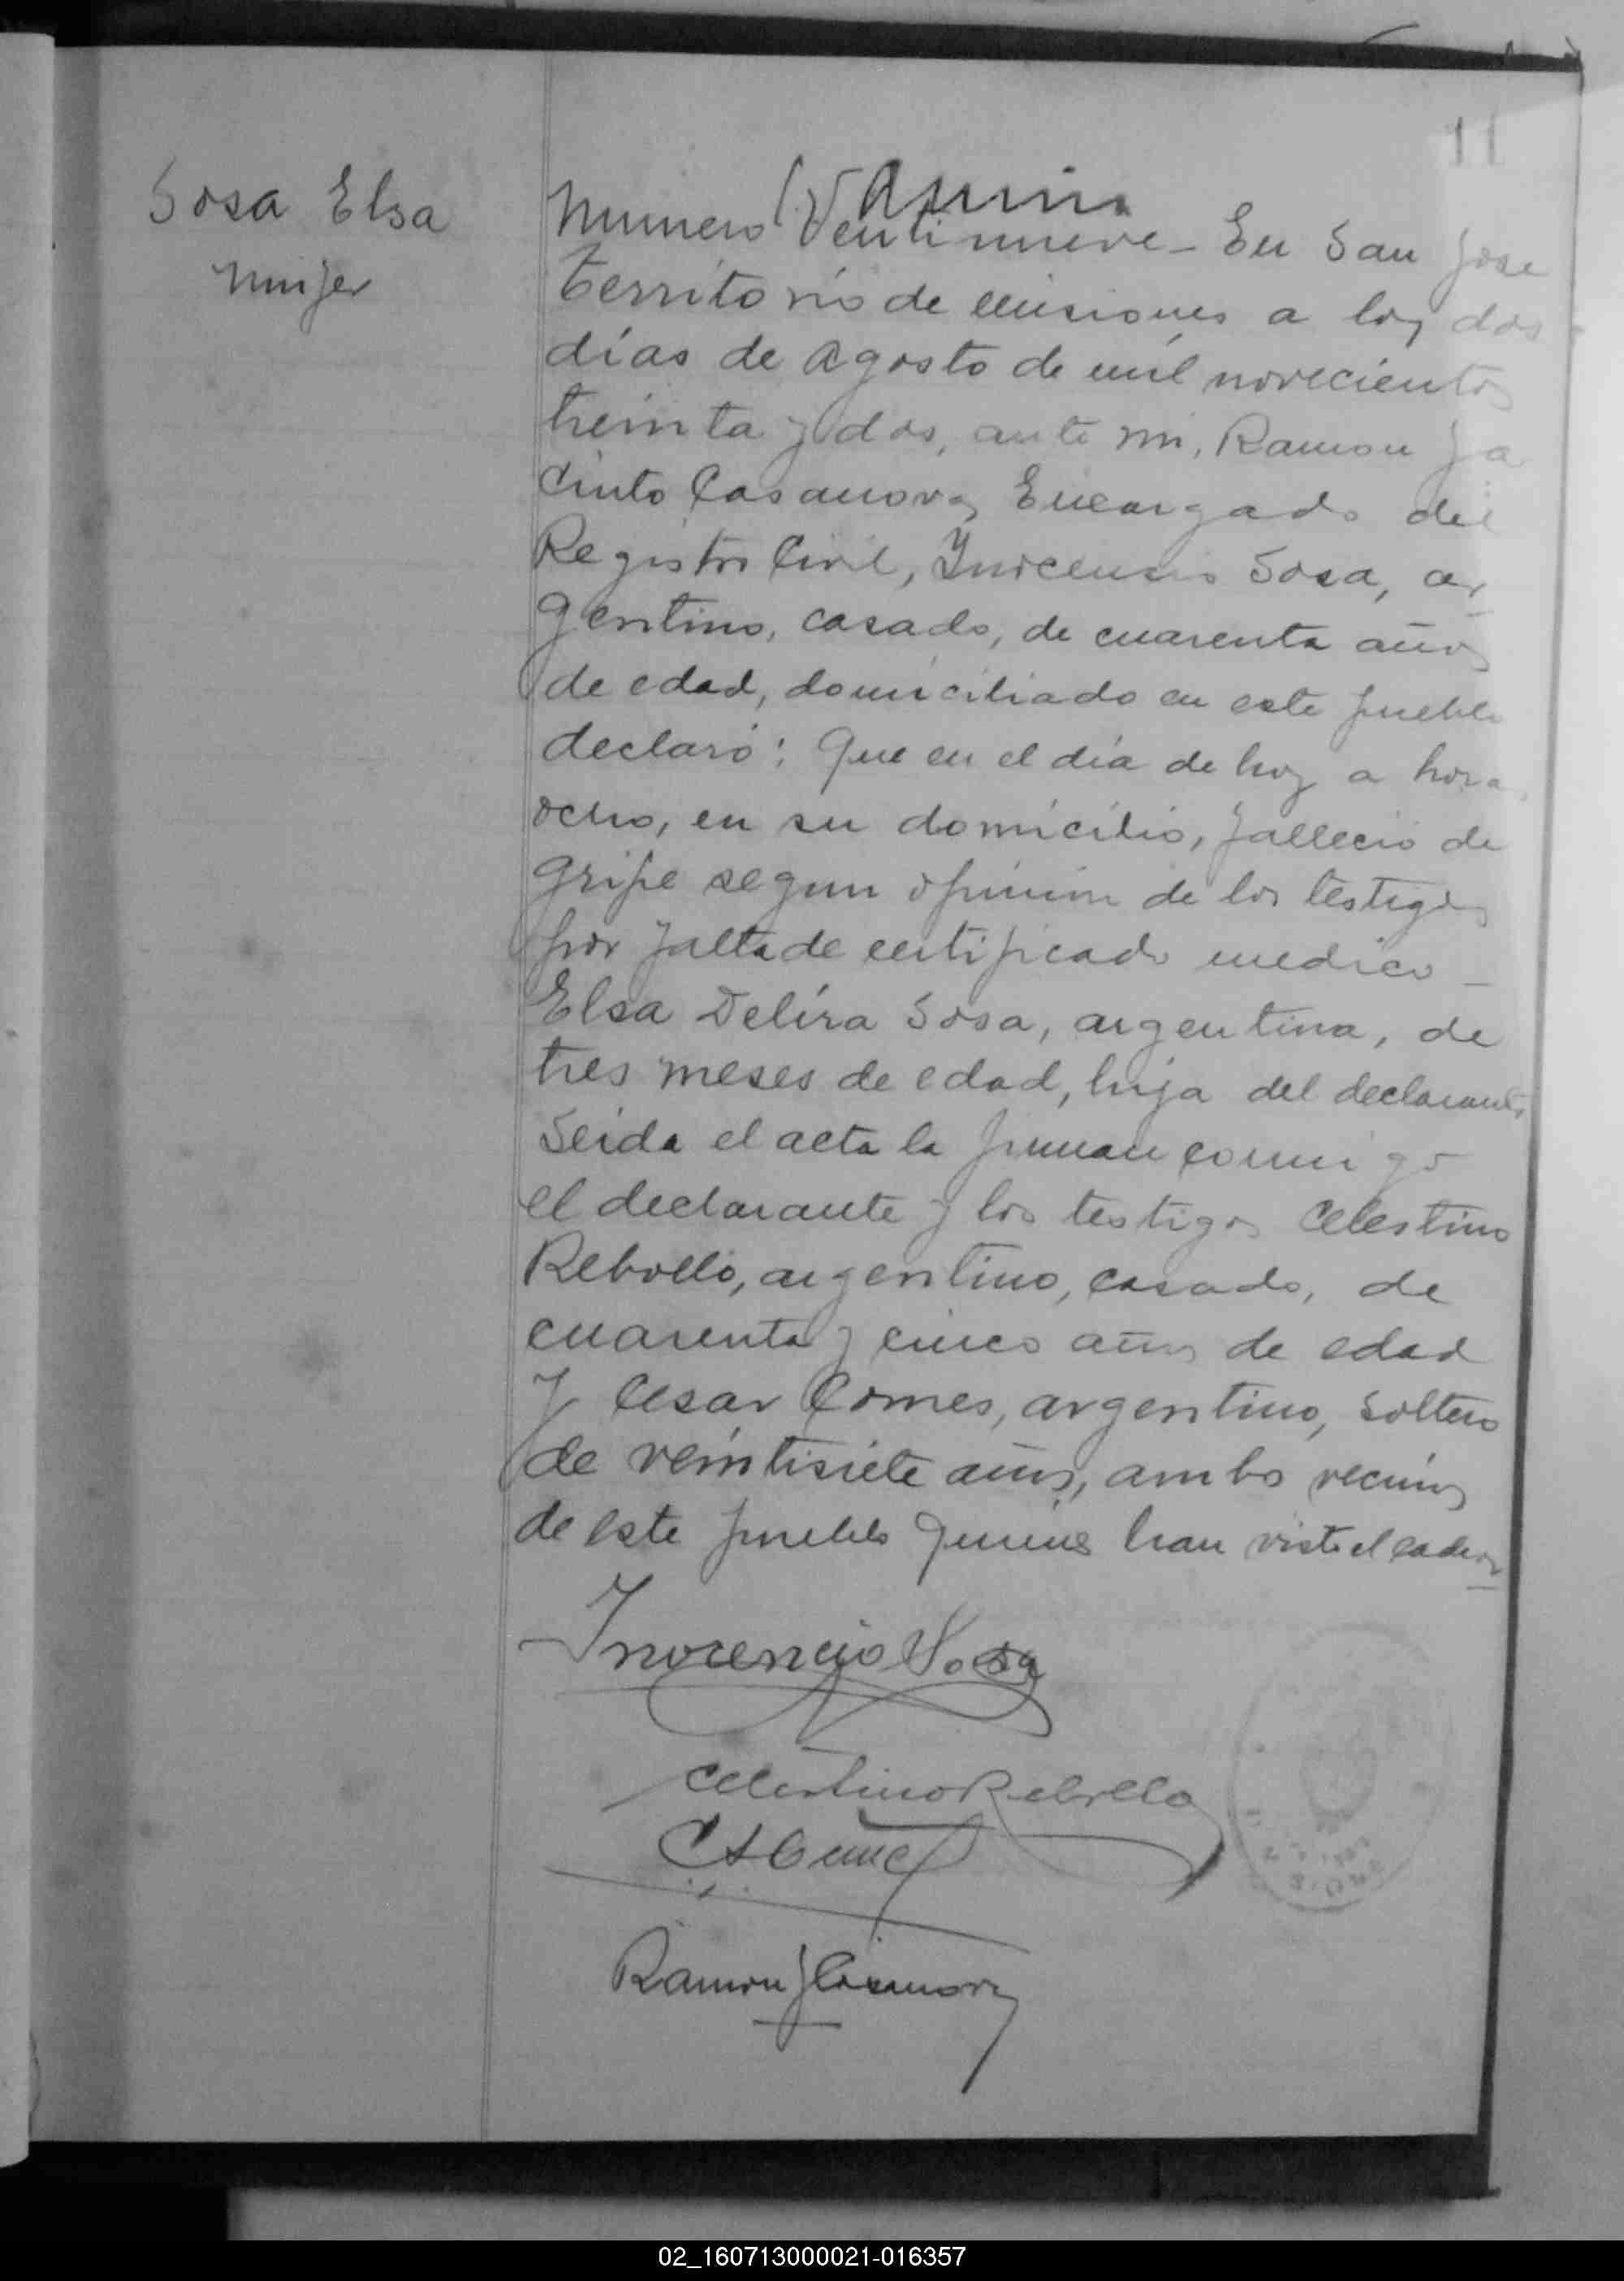 11
Sosa Elsa
mujer
Numero Ventinueve - En San Jose
territorio de Misiones a los dos
días de Agosto de mil novecientos
treinta y dos, ante mi, Ramon Ja
cinto Casanova, Encargado del
Registro Civil, Inocensio Sosa, ar
gentino, casado, de cuarenta años
de edad, domiciliado en este pueblo
declaró: Que en el día de hoy a hora
ocho, en su domicilio, fallecio de
gripe segun opinion de los testigos
por falta de certificado medico -
Elsa Delira Sosa, argentina, de
tres meses de edad, hija del declarante,
Leida el acta la firman conmigo
el declarante y los testigos Celestino
Rebollo, argentino, casado, de
cuarenta y cinco años de edad
Y Cesar Gomes, argentino, soltero
de veintisiete años, ambos vecinos
de este pueblo quienes han visto el cadaver
Inocencio Sosa
Celestino Rebollo
Ramon J Casanova
02_160713000021-016357